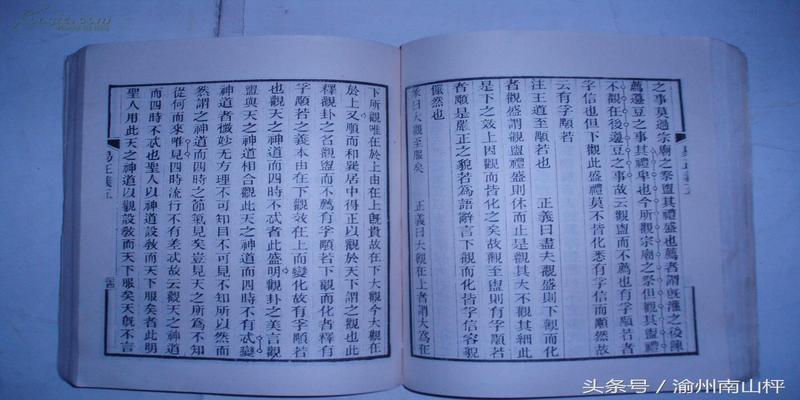 之事莫過宗廟之祭盥其禮盛也薦者謂旣灌之後陳
薦籩豆之事其禮卑也今所觀宗廟之祭但觀其盥禮
不觀在後籩豆之事故云觀盥而不薦也有孚顒若者
孚信也但下觀此盛禮莫不皆化悉有孚信而顒然故
云有孚顒若
注王道至顒若也 正義曰盡夫觀盛則下觀而化
者觀盛謂觀盥禮盛則休而止是觀其大不觀其細此
是下之效上因觀而皆化之矣故觀至盥則有孚顒若
者顒是嚴正之貌若爲語辭言下觀而化皆孚信容貌
儼然也
彖曰大觀至服矣 正義曰大觀在上者謂大爲在
下所觀唯在於上由在上旣貴故在下大觀今大觀在
於上又順而和巽居中得正以觀於天下謂之觀也此
釋觀卦之名觀盥而不薦有孚顒若下觀而化者釋有
孚顒若之義本由在下觀效在上而變化故有孚顒若
也觀天之神道而四時不忒者此盛明觀卦之美言觀
盥與天之神道相合觀此天之神道而四時不有忒變
神道者微妙无方理不可知目不可見不知所以然而
然謂之神道而四時之節氣見矣豈見天之所爲不知
從何而來唯見四時流行不有差忒故云觀天之神道
而四時不忒也聖人以神道設敎而天下服矣者此明
聖人用此天之神道以觀設敎而天下服矣天旣不言
易正義五
头条号 / 渝州南山枰